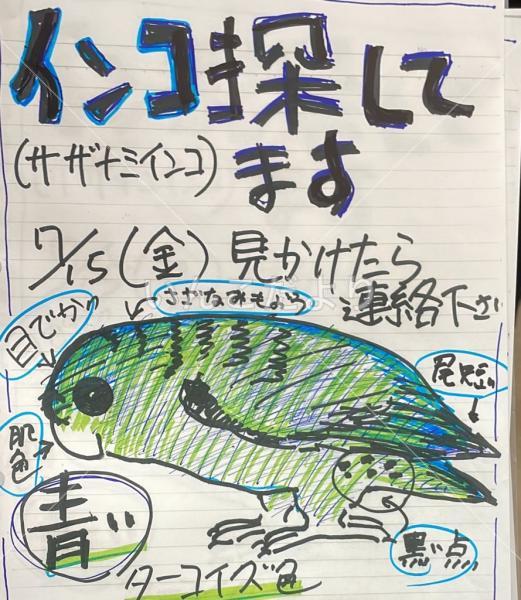 インコ探して
ます
(サザナミインコ)
7/15(金)見かけたら
連絡下さ
さざなみもよう
目でか
尾短い
肌色
青い
ターコイズ色
黒い点